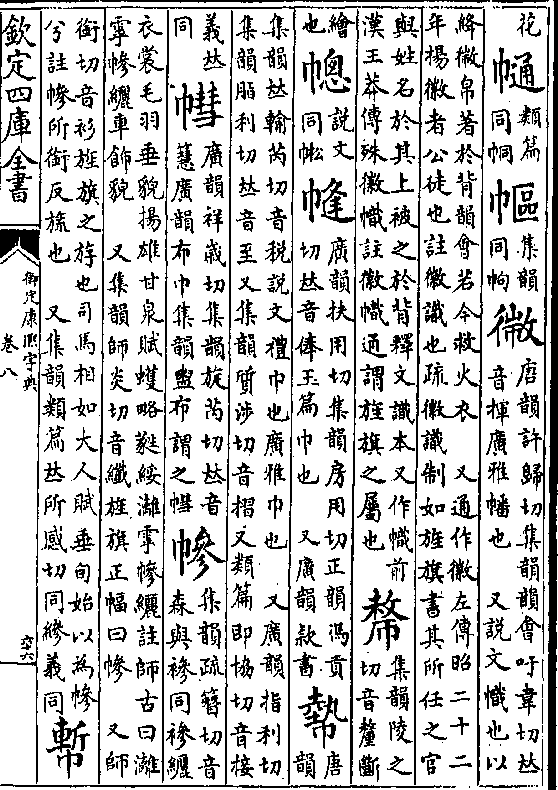 花
類篇
同㡓
集韻
同㡇
徽
唐韻許歸切集韻韻會吁韋切𠀤
音揮廣雅幡也 又說文幟也以
絳徽帛著於背韻會若今救火衣 又通作徽左傳昭二十二
年揚徽者公徒也註徽識也疏徽識制如旌旗書其所任之官
與姓名於其上被之於背釋文識本又作幟前
漢王莽傳殊徽幟註徽幟通謂旌旗之屬也
集韻陵之
切音釐斷
繒
也
幒
說文
同㡆
㡖
廣韻扶用切集韻房用切正韻馮貢
切𠀤音俸玉篇巾也 又廣韻款書
唐
韻
集韻𠀤翰芮切音稅說文禮巾也廣雅巾也 又廣韻指利切
集韻脂利切𠀤音至又集韻質涉切音摺又類篇即協切音接
義𠀤
同
廣韻祥歲切集韻旋芮切𠀤音
篲廣韻布巾集韻布謂之
幓
集韻疏簪切音
森與襂同襂纚
衣裳毛羽垂貌揚雄甘泉賦蠖略蕤綏灕虖幓纚註師古曰灕
虖幓纚車飾貌 又集韻師炎切音纖旌旗正幅曰幓 又師
銜切音衫旌旗之斿也司馬相如大人賦垂旬始以為幓
兮註幓所銜反旒也 又集韻類篇𠀤所感切同縿義同
欽定四庫全書
御定康熙字典
卷八
六十六